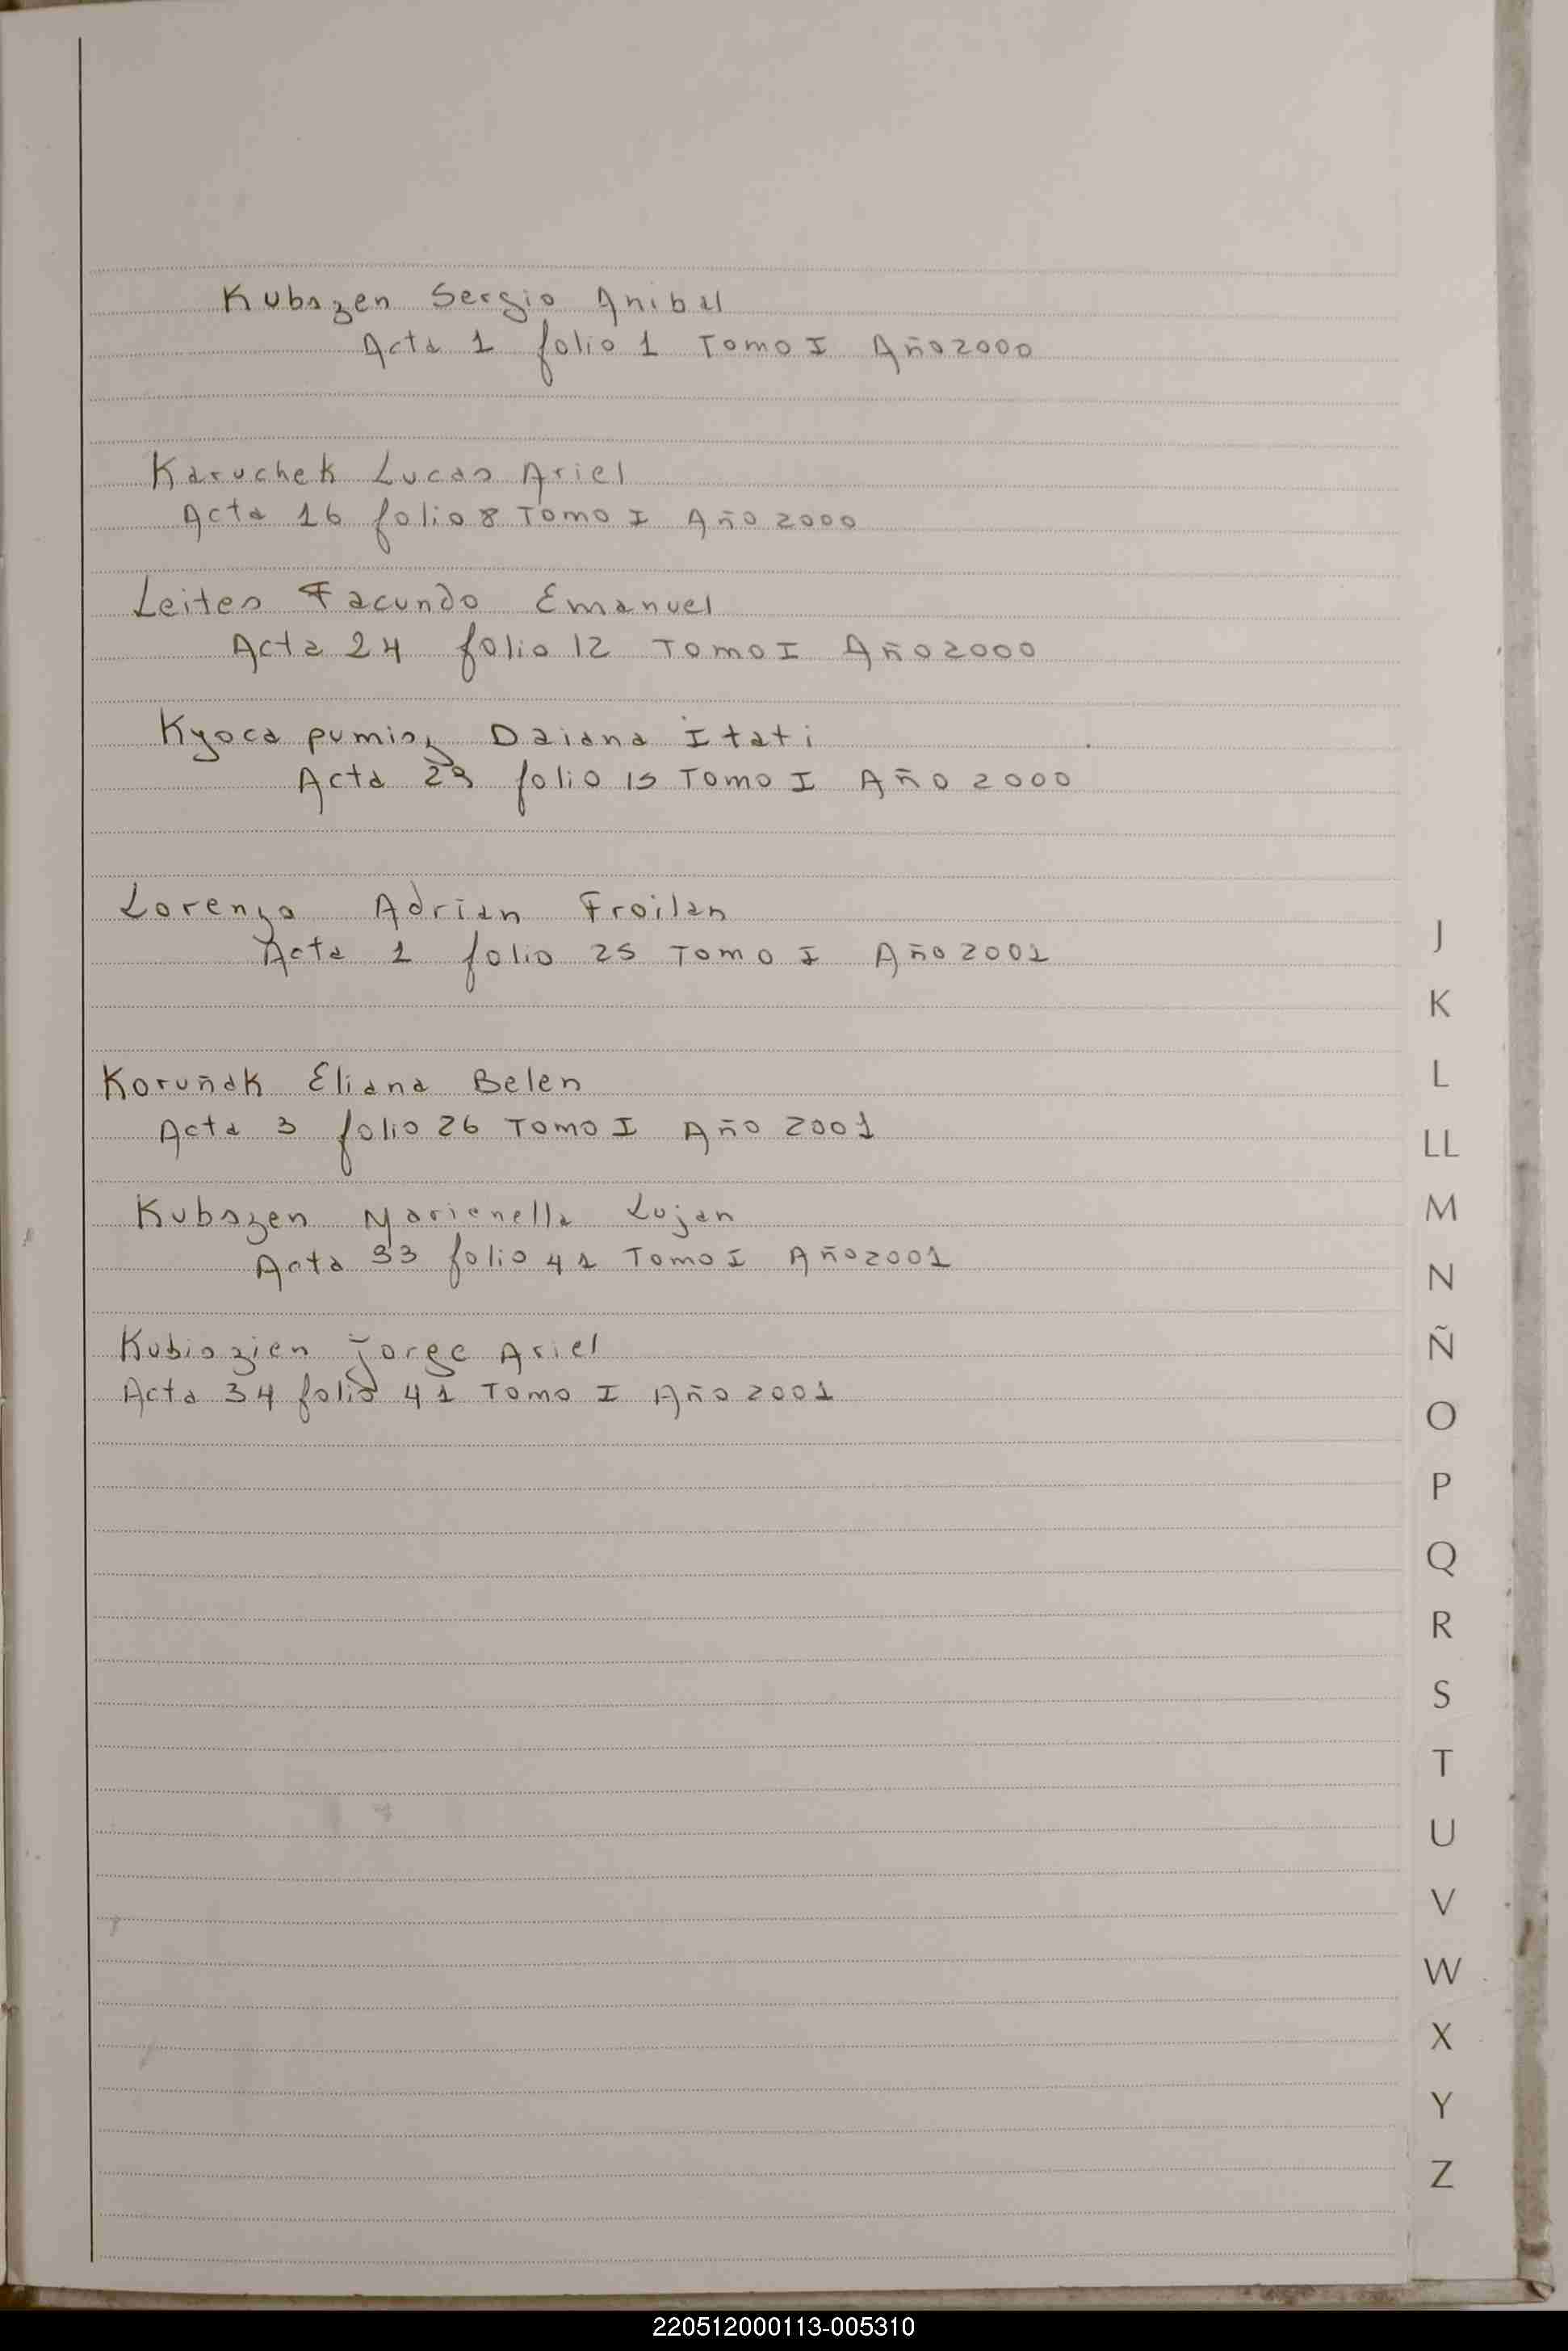 Kubszen Sergio Anibal
Acta 1 folio 1 Tomo I Año 2000
Karuchek Lucas Ariel
Acta 16 folio 8 Tomo I Año 2000
Leites Facundo Emanuel
Acta 24 folio 12 Tomo I Año 2000
Daiana Itati
Acta 29 folio 15 Tomo I Año 2000
Lorenzo Adrian Froilan
Acta 1 folio 25 Tomo I Año 2001
Koruñak Eliana Belen
Acta 3 folio 26 Tomo I Año 2001
Kubszen Marianella Lujan
Acta 33 folio 41 Tomo I Año 2001
Kubiszien Jorge Ariel
Acta 34 folio 41 Tomo I Año 2001
J
K
L
LL
M
N
Ñ
O
P
Q
R
S
T
U
V
W
X
Y
Z
220512000113-005310